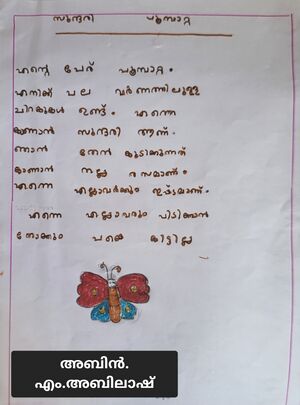 സുന്ദരി പൂമ്പാറ്റ
എന്റെ പേര് പൂമ്പാറ്റ.
എനിക്ക് പല വർണത്തിലുള്ള
ചിറകുകൾ ഉണ്ട്. എന്നെ
കാണാൻ സുന്ദരി ആണ്.
ഞാൻ തേൻ കുടിക്കുന്നത്
കാണാൻ നല്ല രസമാണ്.
എന്നെ എല്ലാവർക്കും ഇഷ്ടമാണ്.
എന്നെ എല്ലാവരും പിടിക്കാൻ
നോക്കും പക്ഷെ കിട്ടില്ല
അബിൻ.
എം.അബിലാഷ്